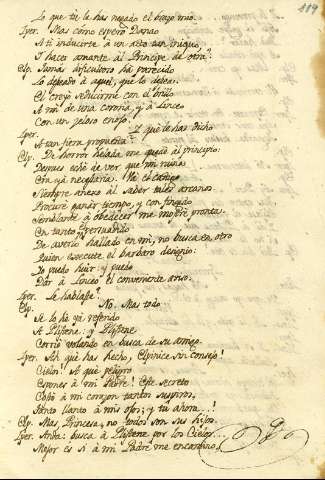 119
Lo que tu le has negado el brazo mio.
Iper. Mas como espero Danao
A ti inducirte à un acto tan iniquo,
Y hacer amante al Principe de otra?
Elp. Jamás dificultoso há parecido
Lo deseado à aquel, que lo desea.
El creyó seducirme con el brillo
A mi de una corona, y à Linceo
Con un zeloso enojo.
Iper. Y que le has dicho
A tan fiera propuesta?
Elp. De horror helada me quedé al principio:
Despues eché de ver que mi ruina
Era ya necesaria. Vá el castigo
Siempre anexo al saber tales arcanos.
Procuré ganar tiempo, y con fingido
Semblante à obedecer me mostré pronta.
En tanto persuadido
De averlo hallado en mi, no busca en otro
Quien execute el barbaro designio:
Yo puedo huir: y puedo
Dár à Linceo el conveniente aviso.
Iper. Le hablaste?
Elp. No. Mas todo
Se lo he ya referido
A Plistene: y Plistene
Corrió volando en busca de su amigo.
Iper. Ah que has hecho, Elpinice sin consejo!
Cielos! A que peligro
Expones à mi Padre! Este secreto
Costó à mi corazon tantos suspiros,
Tanto llanto à mis ojos; y tu ahora...!
Elp. Mas, Princesa, no todos son sus hijos.
Iper. Anda: busca à Plistene por los Cielos...
Mejor es si à mi Padre me encamino.